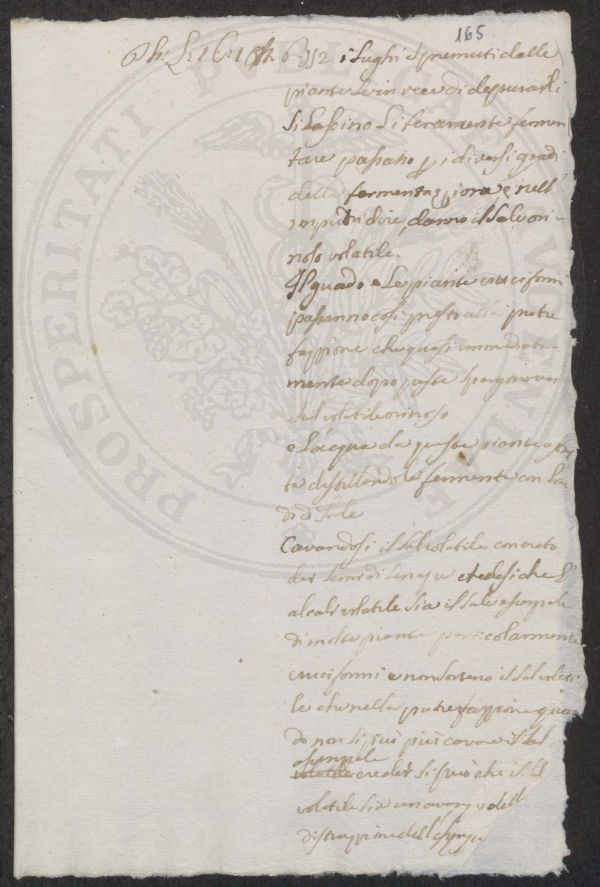 165
i sughi spremuti dalle
piante se in vece di depurarli
si lascino liberamente fermen
tare passano p i diversi gradi
della fermentazione e nell
imputridire danno il sal ori
noso volatile.
Il guado e le piante cruciformi
passanno così presto alla putre
fazzione che quasi immediata
mente dopo peste spargono un
sal volatile orinoso
e l'acqua da queste piante
distillandola fermenta con
di Sale
Cavandosi il sal volatile concreto
dai semi di senapa credesi che l'
alcali volatile sia il sale essenziale
di molte piante particolarmente
cruciformi e non sortano il sal volati
le che nella putrefazzione quan
do non si può più cavare il sal
essenziale
volatile creder si può che il sal
volatile sia un avanzo dell
distruzzione dell
PROSPERITATI PUBLICAE AUGENDAE